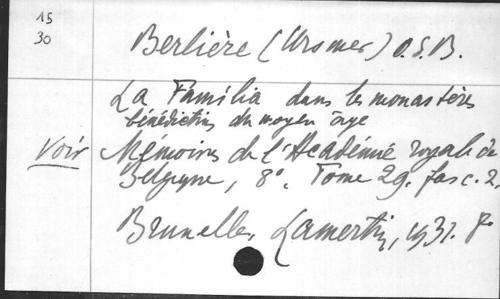 15
30
Berlière (Ursmer) O.S.B.
La Familia dans les monastères
bénédictins du moyen âge
Voir Mémoires de l'Académie royale de
Belgique, 8°. Tome 29. fasc. 2,
Bruxelles, Lamertin, 1931.